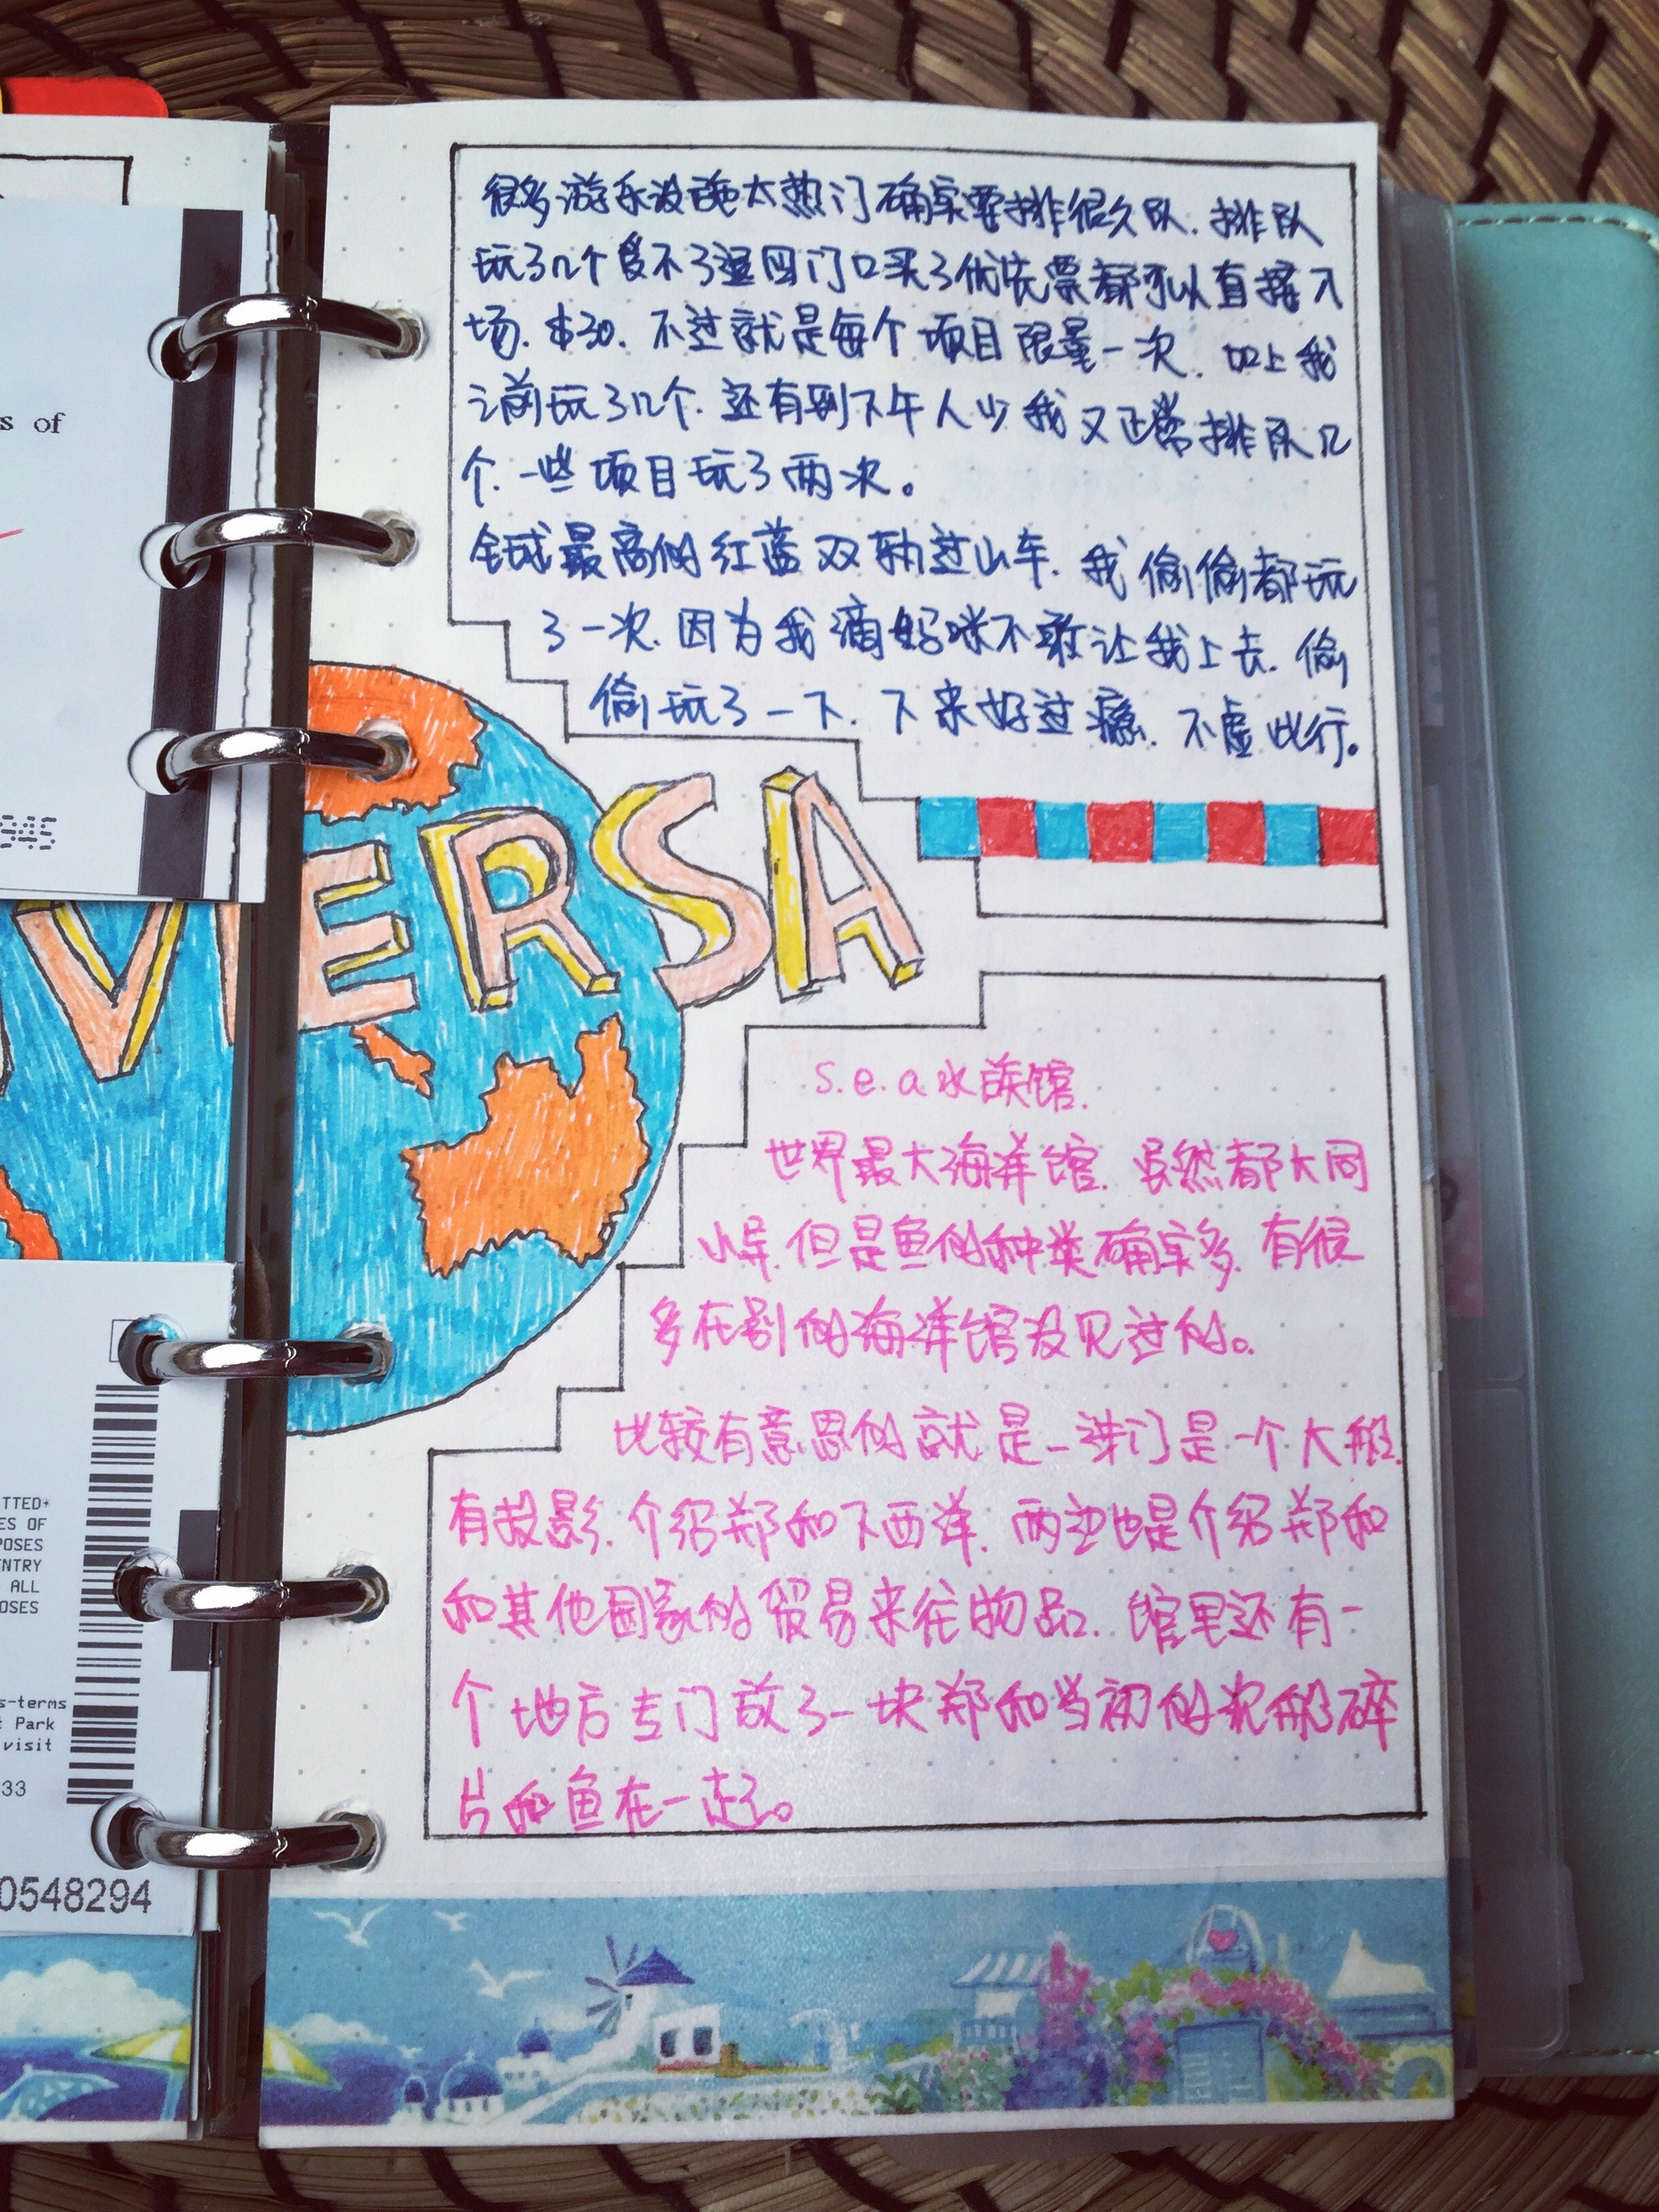 s of
945
TTED+
ES OF
POSES
ENTRY
ALL
OSES
s-terms
t Park
visit
33
0548294
很多游乐设施太热门确实要排很久队.排队
玩了几个受不了退回门口买了优先票都可以直接入
场.$30.不过就是每个项目限量一次.加上我
之前玩了几个.还有到下午人少我又正常排队几
个.一些项目玩了两次。
全球最高的红蓝双轨过山车.我偷偷都玩
了一次.因为我滴妈咪不敢让我上去.偷
偷玩了一下.下来好过瘾.不虚此行。
VERSA
s.e.a水族馆.
世界最大海洋馆.虽然都大同
小异.但是鱼的种类确实多.有很
多在别的海洋馆没见过的。
比较有意思的就是一进门是一个大船.
有投影.介绍郑和下西洋.两边也是介绍郑和
和其他国家的贸易来往物品.馆里还有一
个地方专门放了一块郑和当初的沉船碎
片和鱼在一起。